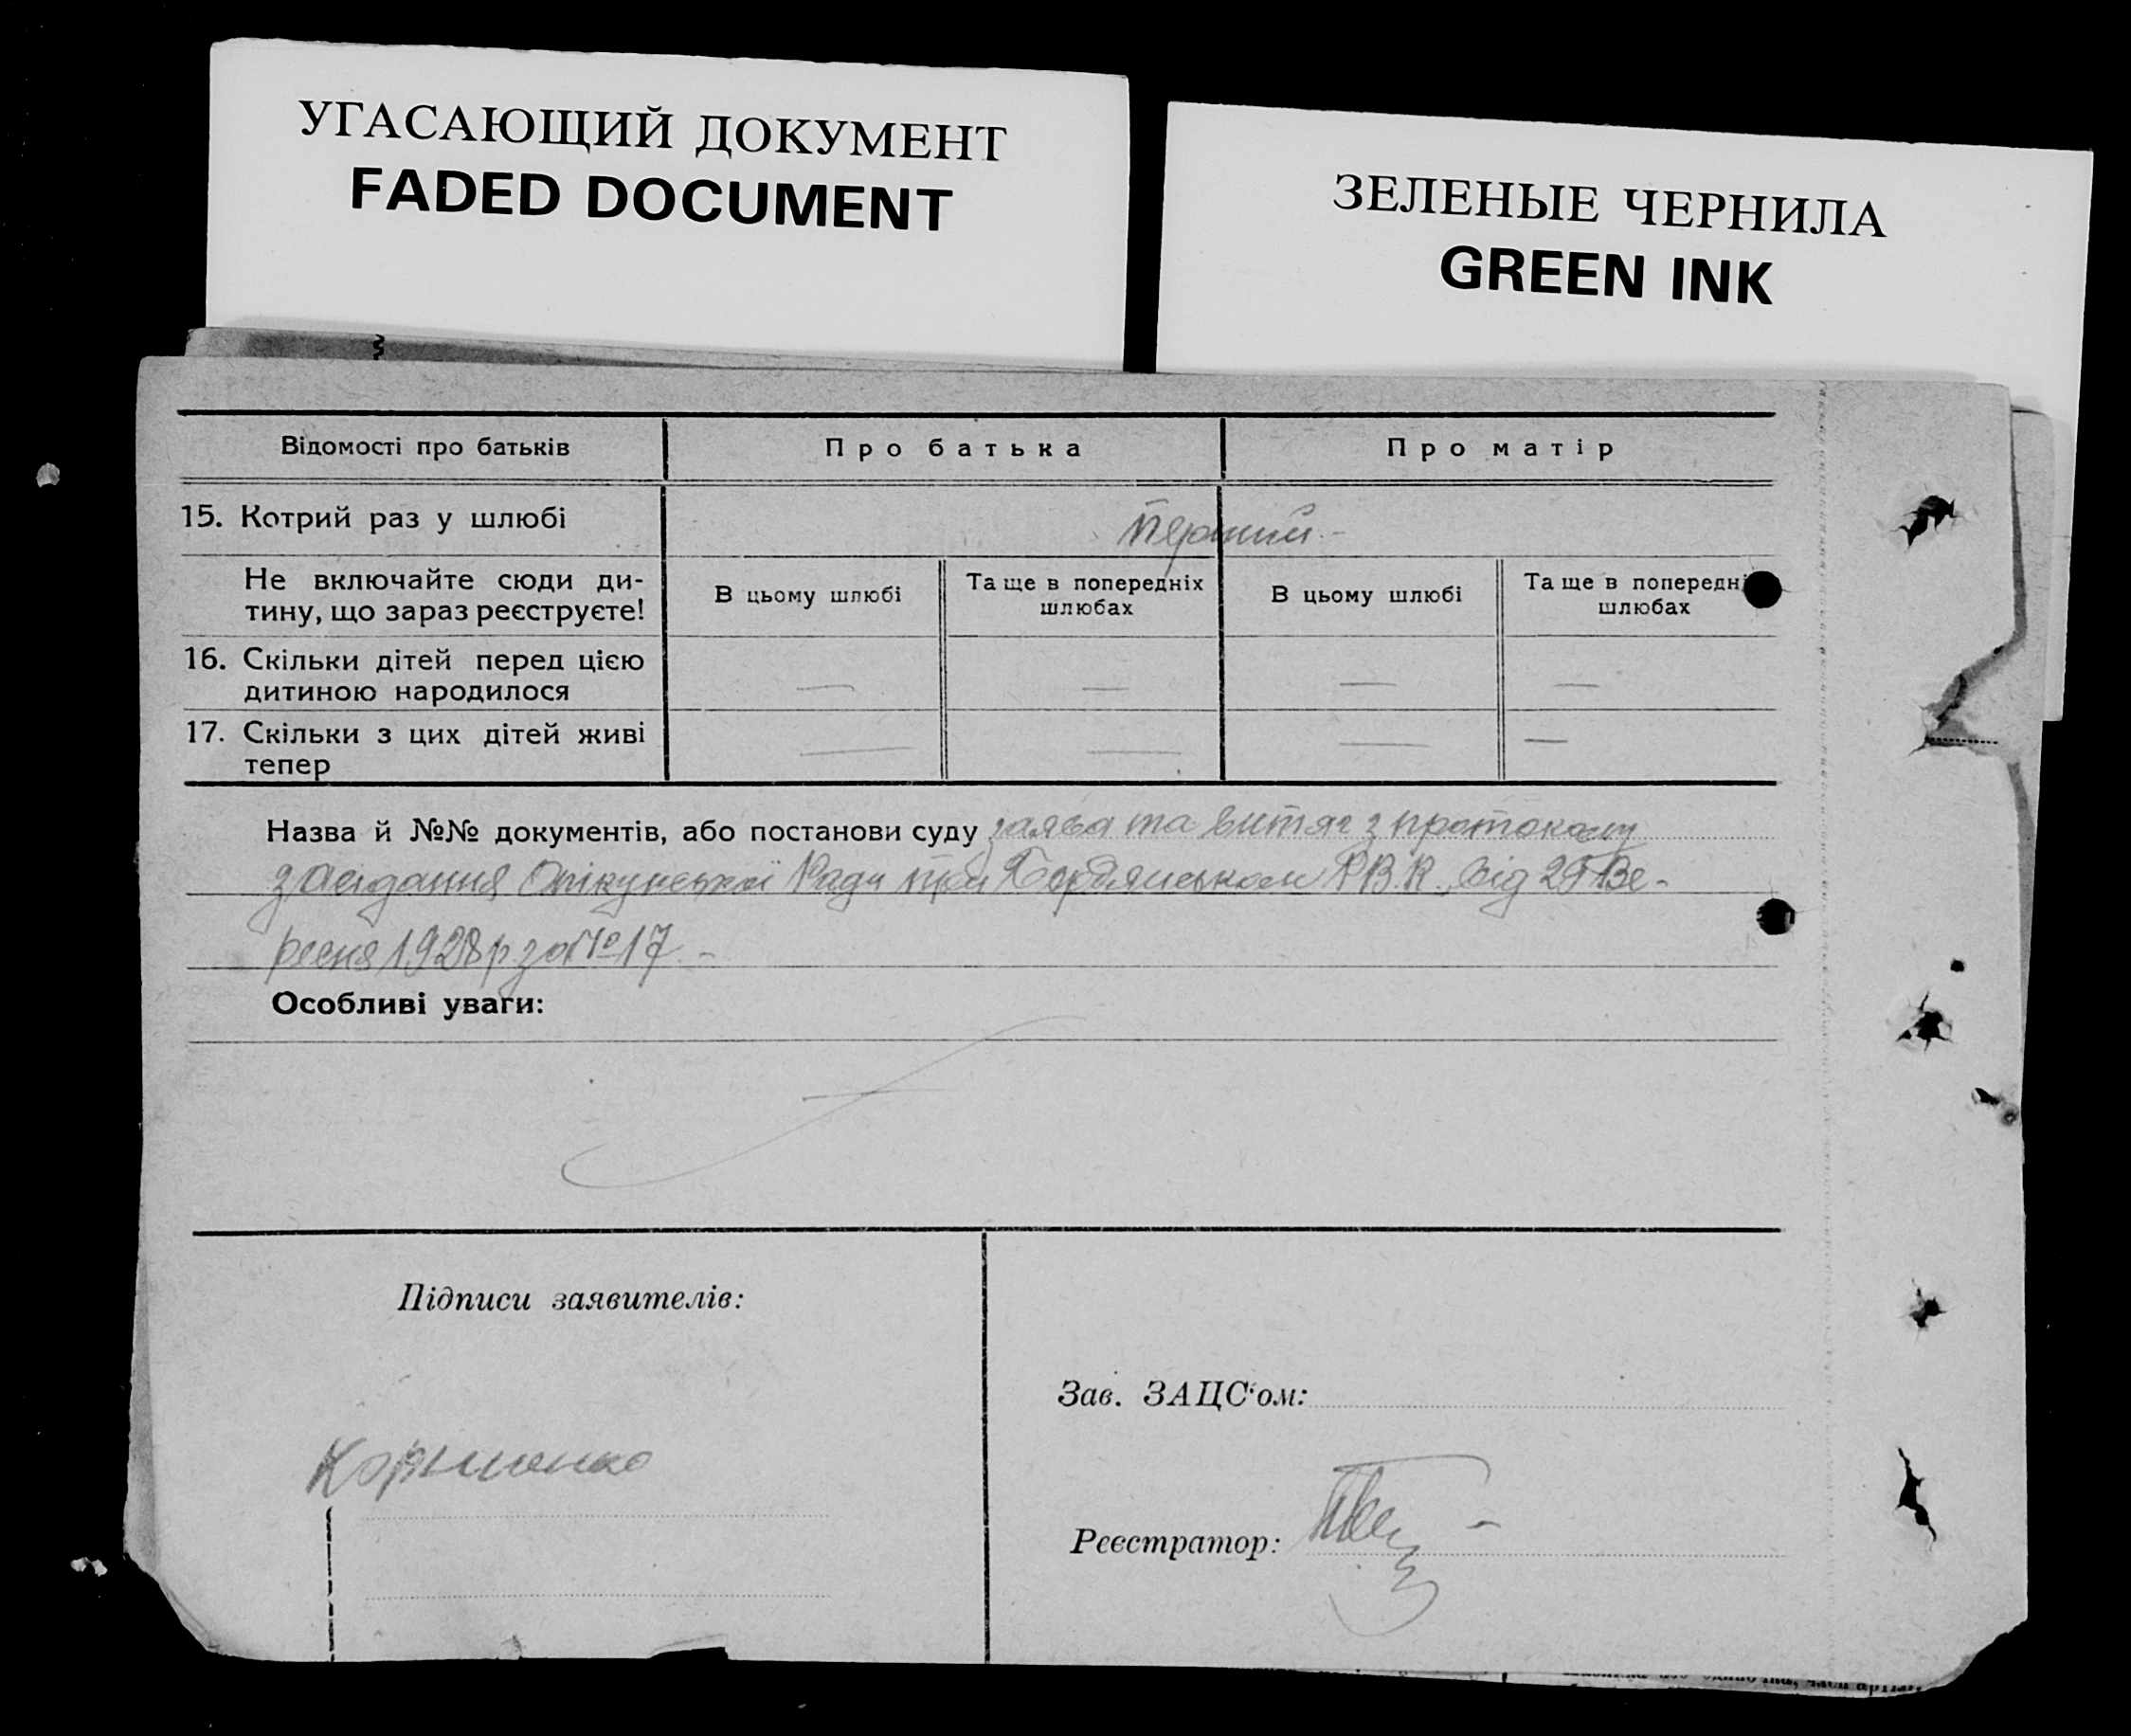 УГАСАЮЩИЙ ДОКУМЕНТ
FADED DOCUMENT
ЗЕЛЕНЫЕ ЧЕРНИЛА
GREEN INK
Відомості про батьків
Про батька
Про матір
15. Котрий раз у шлюбі
перший. -
Не включайте сюди ди-
тину, що зараз реєструєте!
В цьому шлюбі
Та ще в попередніх
шлюбах
В цьому шлюбі
Та ще в попередні
шлюбах
16. Скільки дітей перед цією
дитиною народилося
— — — —
17. Скільки з цих дітей живі
тепер
— — — —
Назва й №№ документів, або постанови суду заява та витяг з протоколу
засідання Опікунської Ради при Бердянськом РВК. від 29 Ве-
ресня 1928 р за № 17. -
Особливі уваги:
Підписи заявителів:
Зав. ЗАЦС'ом:
Реєстратор: